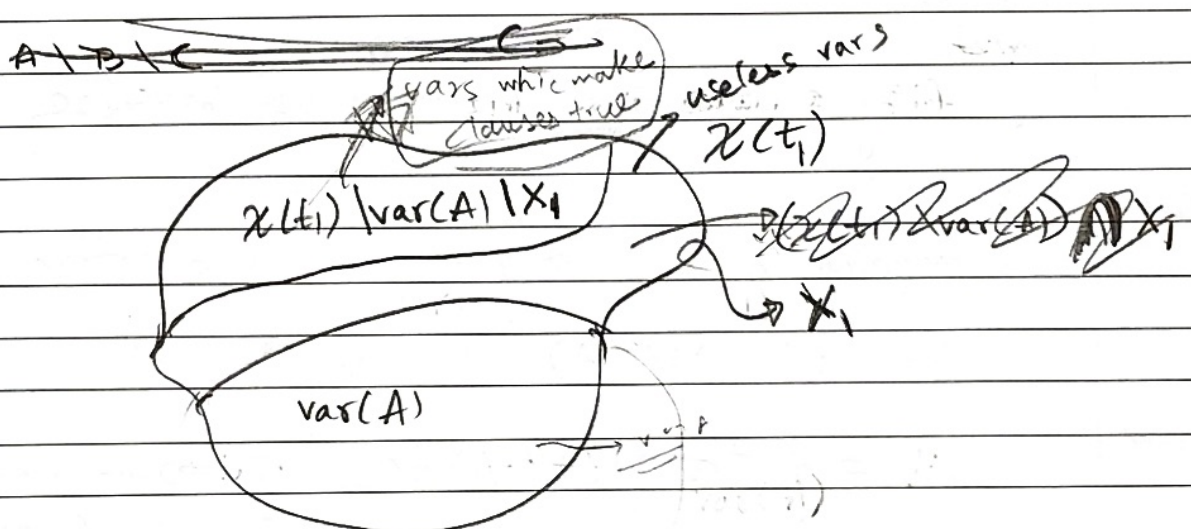 A \ B \ C
vars whic make
clauses true
useless vars
χ(t₁)
χ(t₁) \ var(A) \ X₁
(χ(t₁) \ var(A)) ∩ X₁
X₁
var(A)